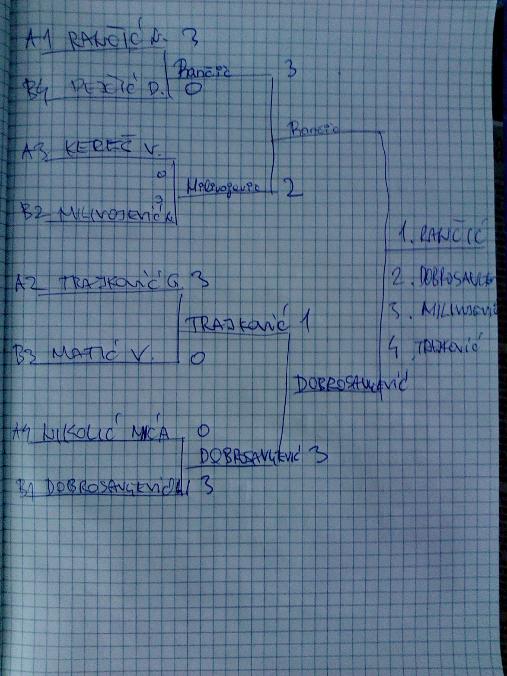 A1 RANČIĆ N. 3
Rančić 3
B4 PEJČIĆ D. 0
Rančić
A3 KEREČ V.
0
Milivojević 2
3
B2 MILIVOJEVIĆ N.
1. RANČIĆ
2. DOBROSAVLJEV
3. MILIVOJEVIĆ
4. TRAJKOVIĆ
A2 TRAJKOVIĆ G. 3
TRAJKOVIĆ 1
B3 MATIĆ V. 0
DOBROSAVLJEVIĆ
A4 NIKOLIĆ 0
DOBROSAVLJEVIĆ 3
B1 DOBROSAVLJEVIĆ 3